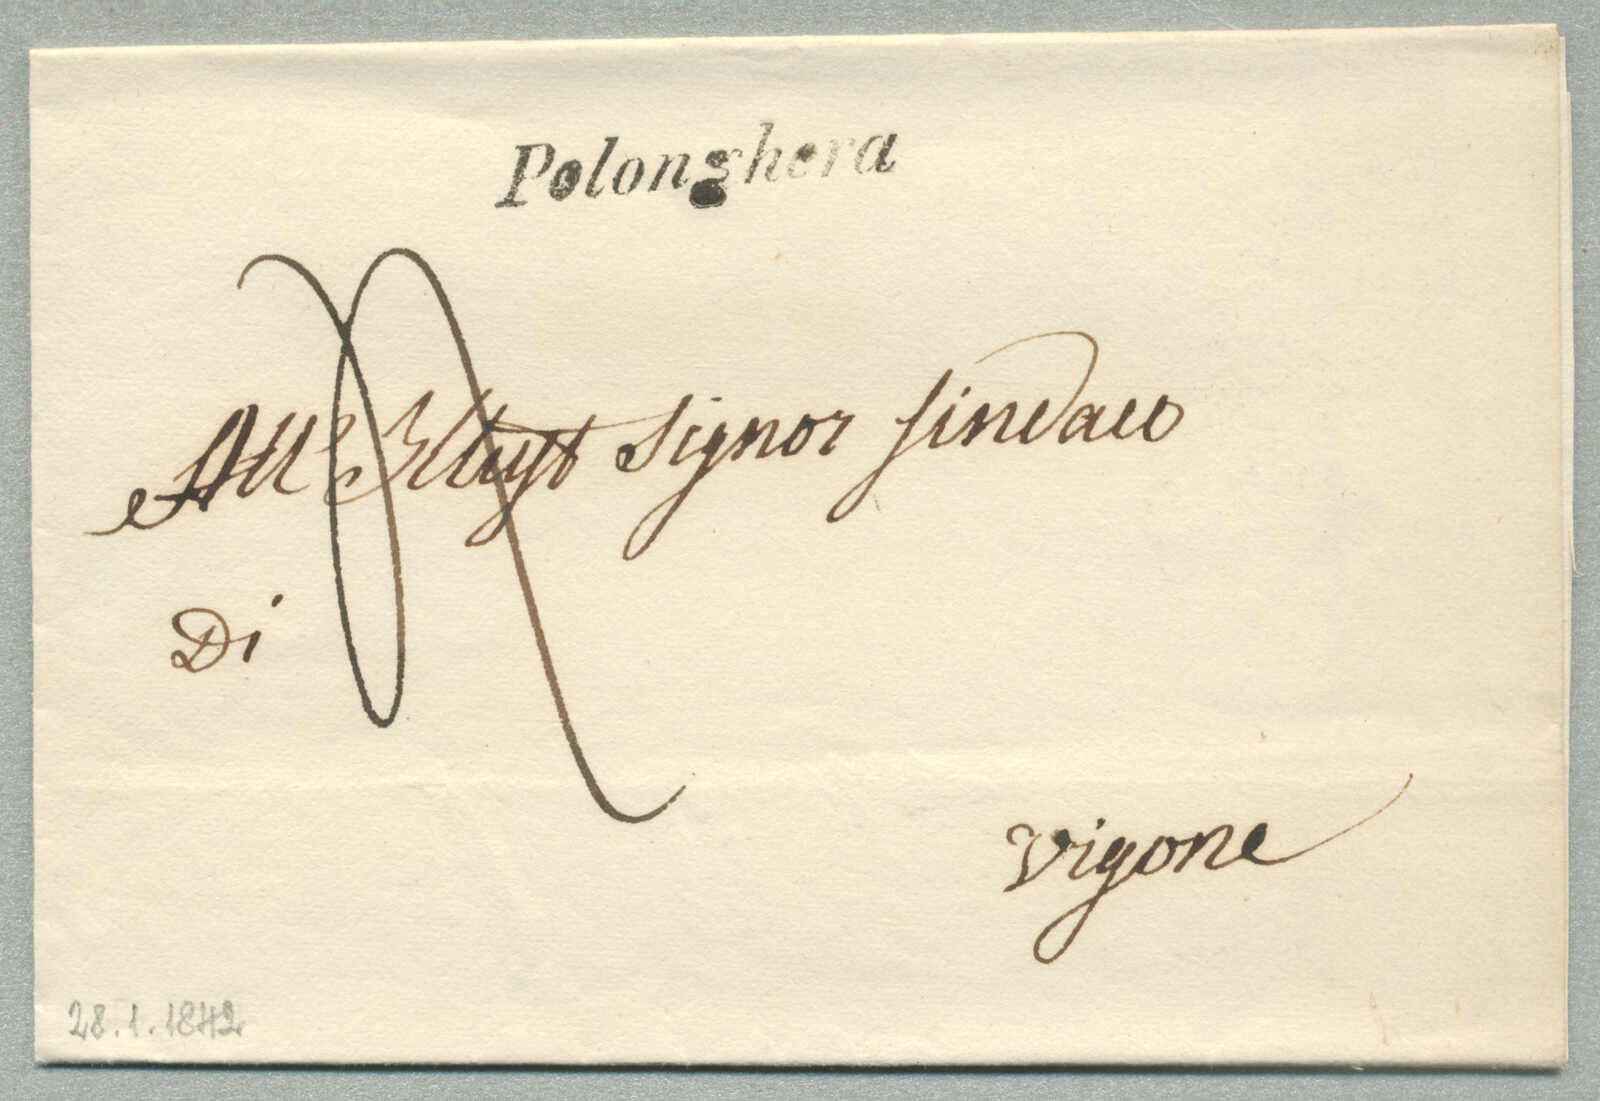 Polonghera
All' Illust Signor Sindaco
Di
Vigone
28.1.1842